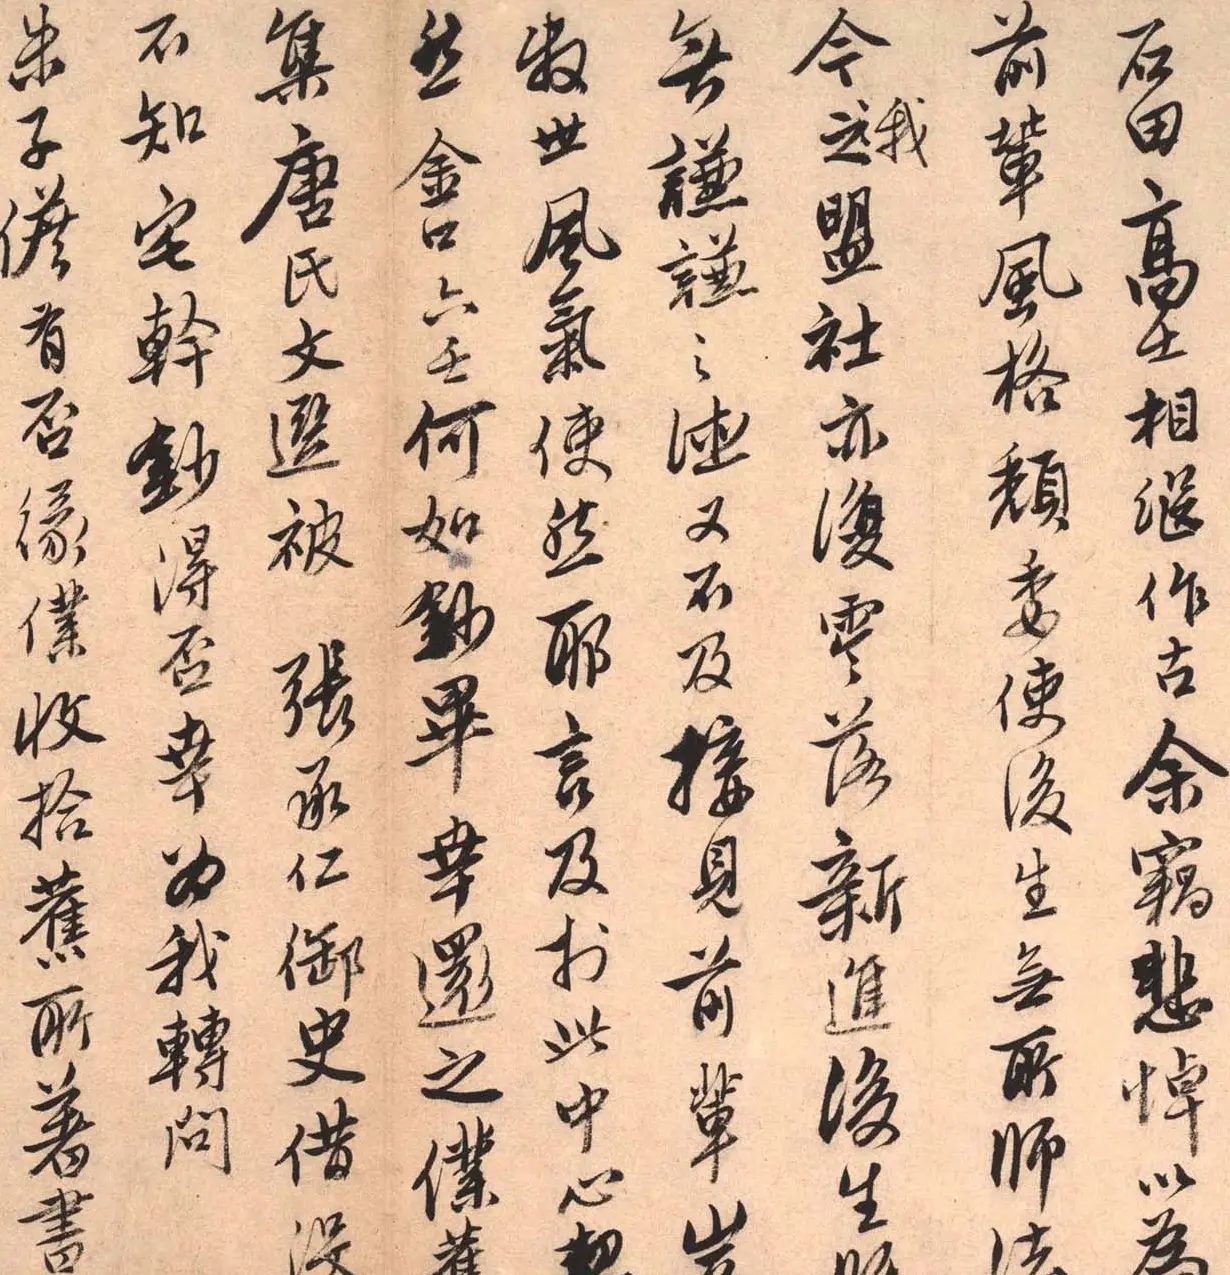 石田高士相继作古余竊悲悼以為
前輩風格頹委使後生無所師法
今之我盟社亦復零落新進後生
無謙謙之德又不及接見前輩豈
世風氣使然耶言及於此中心
然金口六壬何如鈔畢幸還之僕舊
集唐氏文選被張承仁御史借沒
不知宅幹鈔得否幸為我轉問
朱子儀有否緣僕收拾舊所著書